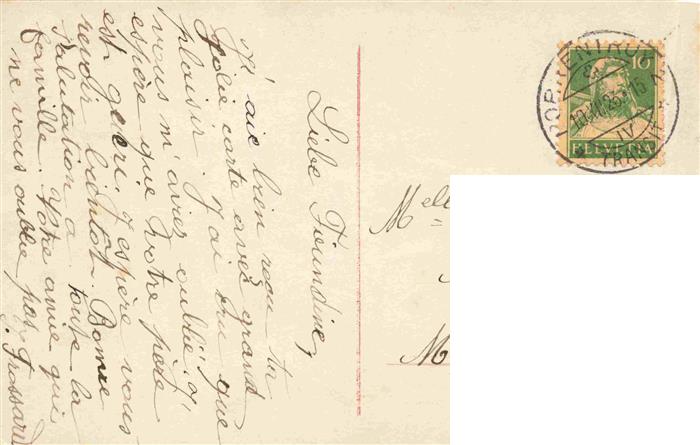 Liebe Freundine,
J'ai bien reçu ta
jolie carte avec grand
plaisir. J'ai cru que
vous m'aviez oublié. J'
espère que votre père
est guéri. J'espère vous
revoir bientôt. Bonne
salutation a toute la
famille. Votre amie qui
ne vous oublie pas.
J. Frossard
Melle
M
10
HELVETIA
PORRENTRUY